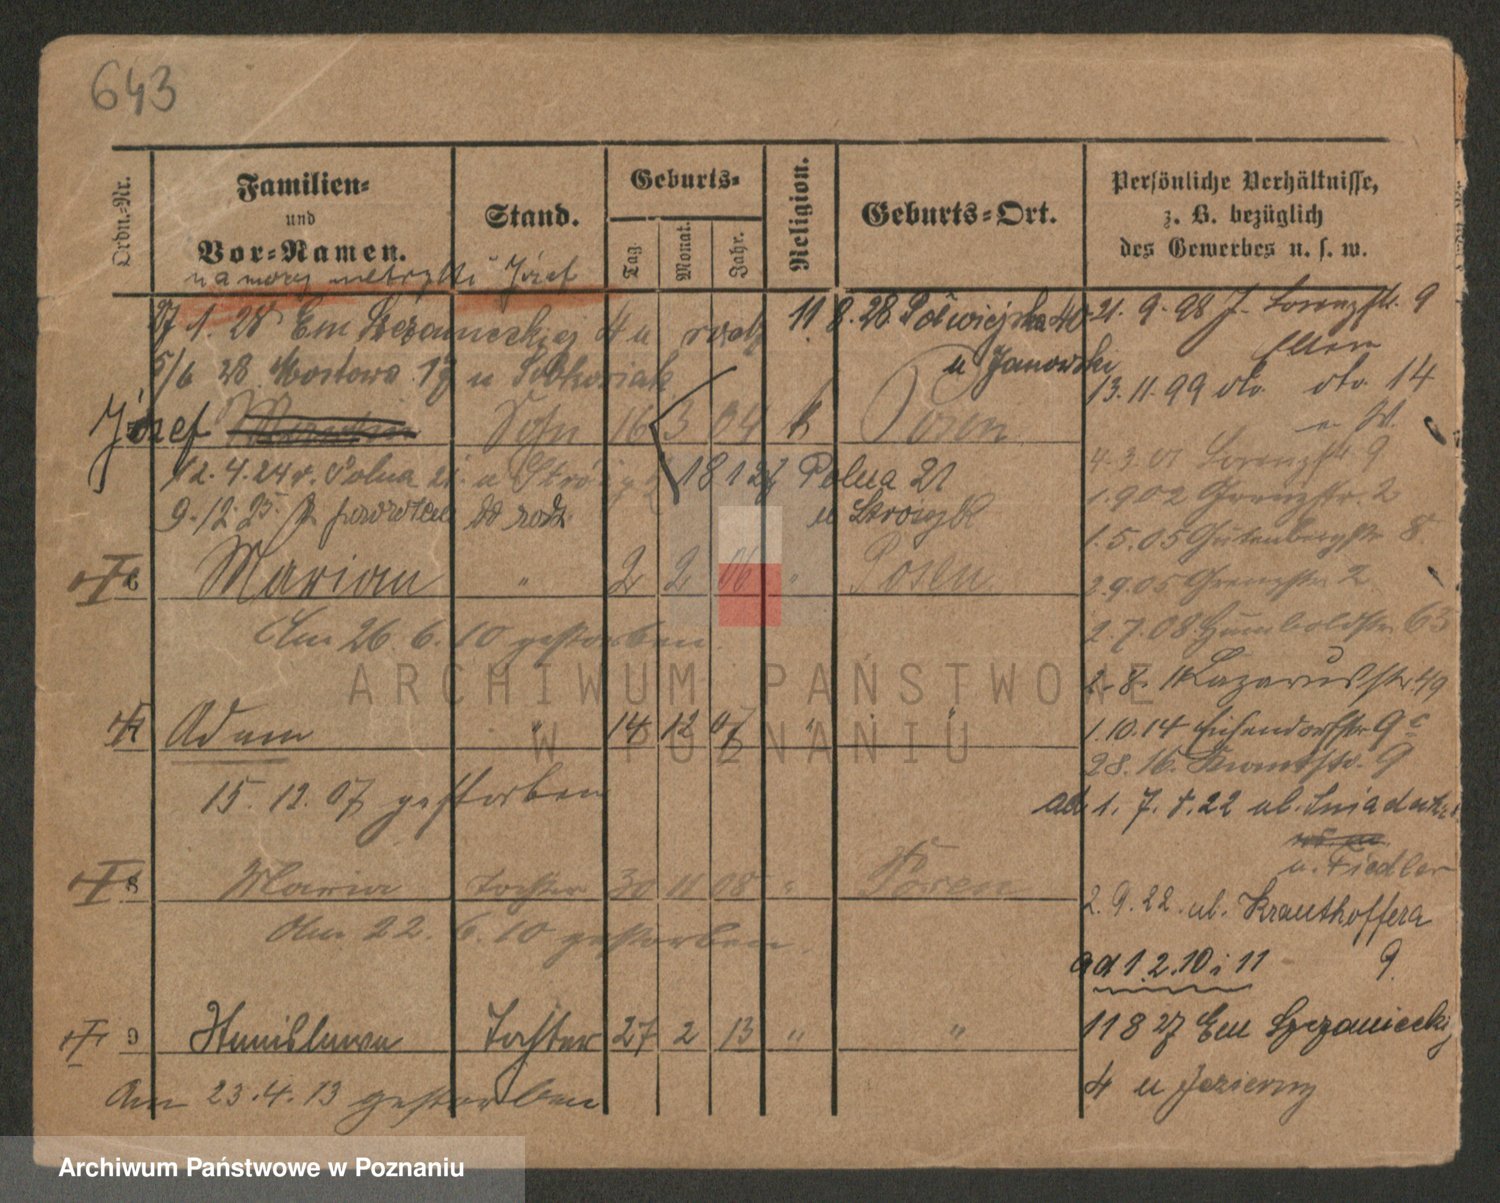 643
Ordn.-Nr.
Familien-
und
Vor-Namen.
Stand.
Geburts-
Tag
Monat.
Jahr.
Religion.
Geburts-Ort.
Persönliche Verhältnisse,
z. B. bezüglich
des Gewerbes u. s. w.
na mocy metryki Józef
27 1. 28 Em Szczanieckiej 4 u
11 8. 28. Półwiejska 40
u Janowski
21. 9. 98 Lorenzstr. 9
Eltern
5/6 28 Mostowa 17 u
13. 11. 99 dto. dto. 14
Józef
Sohn 16 3 04 k Posen
4. 3. 01 Lorenzstr 9
12. 4. 24 r. Polna 21 u
18 1 27 Polna 21
u
1. 9 02 Grenzstr. 2
9. 12. 25 do rodz.
1. 5. 05 Gutenbergstr 8.
6 Marian " 2 2 06 " Posen
3. 9. 05 Grenzstr 2
Am 26. 6. 10 gestorben.
2. 7. 08 Humboldtstr 63
2. 8. 11 Lazarusstr. 49
7 Adam " 14 12 07 " "
1. 10. 14 Eichendorffstr 9c
28. 16. 9
15. 12. 07 gestorben
1. 7. 22 ul. Śniadeckich
u. Fiedler
8 Maria Tochter 30 11 08 " Posen
2. 9. 22. ul. Krauthoffera
9.
Am 22. 6. 10 gestorben.
ad 1. 2. 10 i 11
9 Stanislawa Tochter 27 2 13 " "
11 8 27 Em Szczanieckiej
4 u Jezierny
Am 23. 4. 13 gestorben
ARCHIWUM PAŃSTWOWE
W POZNANIU
Archiwum Państwowe w Poznaniu